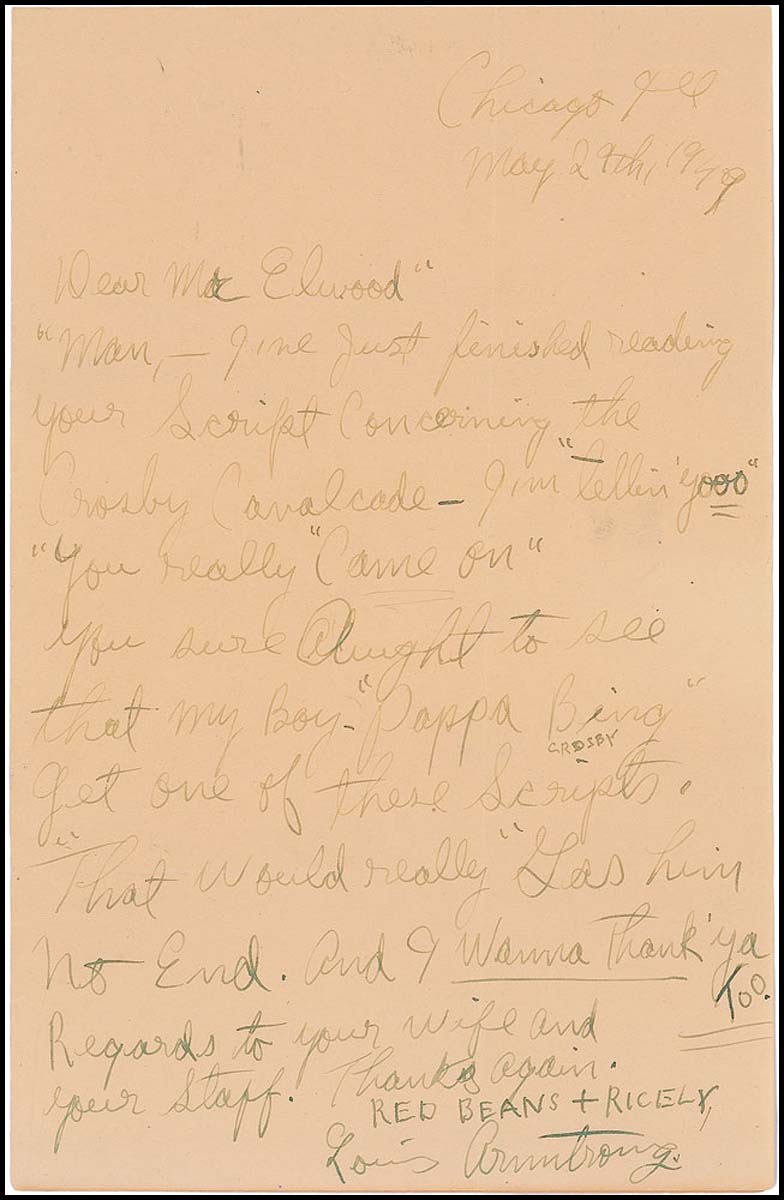 Chicago Ill
May 29th, 1949
Dear Mr Elwood"
"Man, — I'me Just finished reading
your Script Concerning the
Crosby Cavalcade – I'm "Tellin' 'yooo"
"You really "Came on"
you sure Aught to see
that my Boy - "Pappa Bing"
CROSBY
get one of these Scripts.
"That would really "Gas him
No End. And I Wanna Thank 'ya
Too.
Regards to your wife and
your Staff. Thanks again.
RED BEANS + RICELY,
Louis Armstrong.